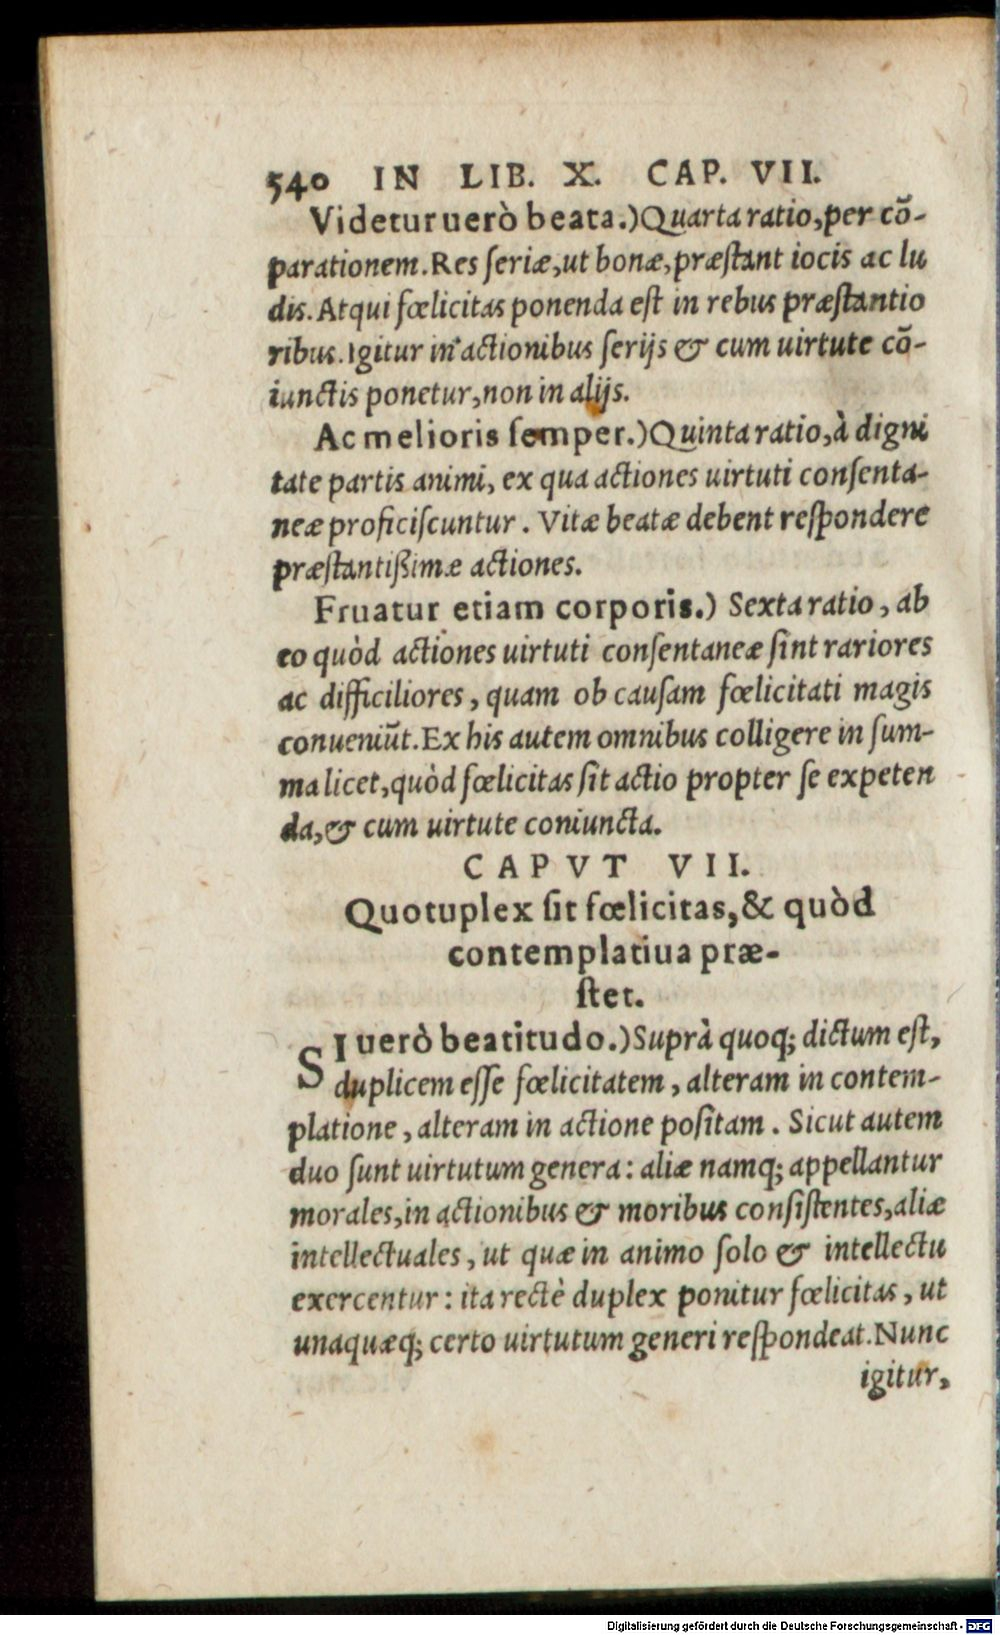 540 IN LIB. X. CAP. VII.
Videtur uerò beata.) Quarta ratio, per cō-
parationem. Res seriæ, ut bonæ, præstant iocis ac lu
dis. Atqui fœlicitas ponenda est in rebus præstantio
ribus. Igitur in actionibus serijs & cum uirtute cō-
iunctis ponetur, non in alijs.
Ac melioris semper.) Quinta ratio, à digni
tate partis animi, ex qua actiones uirtuti consenta-
neæ proficiscuntur. Vitæ beatæ debent respondere
præstantißimæ actiones.
Fruatur etiam corporis.) Sexta ratio, ab
eo quòd actiones uirtuti consentaneæ sint rariores
ac difficiliores, quam ob causam fœlicitati magis
conueniūt. Ex his autem omnibus colligere in sum-
ma licet, quòd fœlicitas sit actio propter se expeten
da, & cum uirtute coniuncta.
CAPVT VII.
Quotuplex sit fœlicitas, & quòd
contemplatiua præ-
stet.
SI uerò beatitudo.) Suprà quoq; dictum est,
duplicem esse fœlicitatem, alteram in contem-
platione, alteram in actione positam. Sicut autem
duo sunt uirtutum genera: aliæ namq; appellantur
morales, in actionibus & moribus consistentes, aliæ
intellectuales, ut quæ in animo solo & intellectu
exercentur: ita rectè duplex ponitur fœlicitas, ut
unaquæq; certo uirtutum generi respondeat. Nunc
igitur,
Digitalisierung gefördert durch die Deutsche Forschungsgemeinschaft - DFG